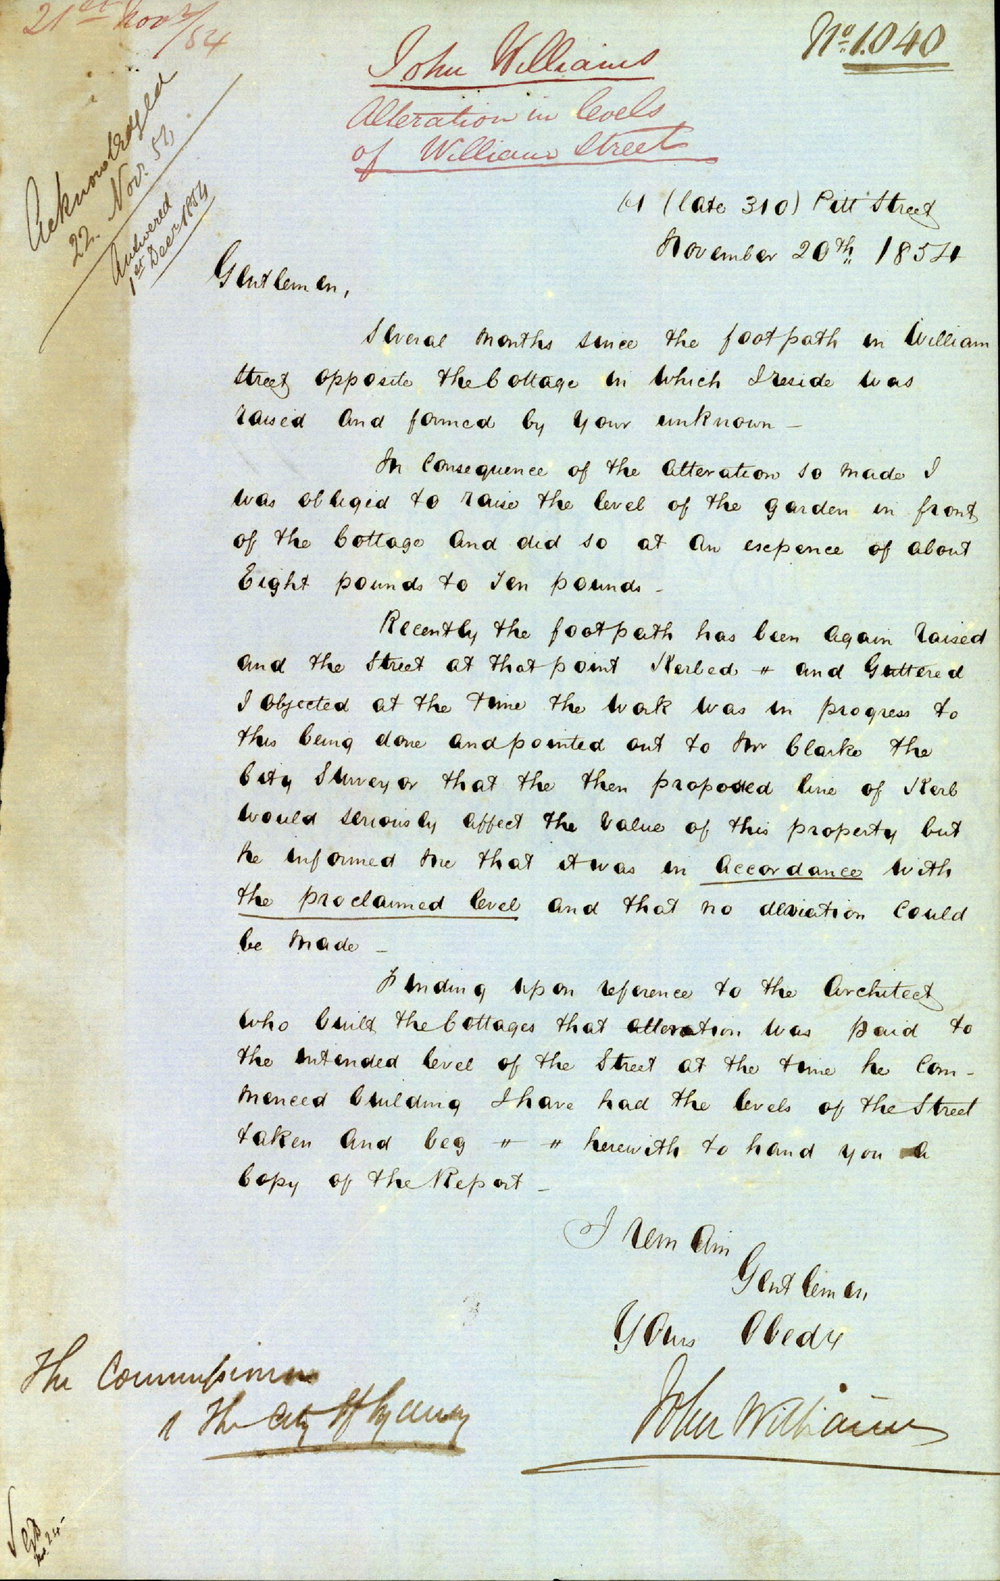 21st Novr/54
No. 1.040
John Williams
Alteration in levels
of William Street
Acknowledged
22. Nov. 54
Answered
1st Decr 1854
61 (late 310) Pitt Street
November 20th 1854
Gentlemen,
Several Months since the footpath in William
Street opposite the Cottage in which I reside was
raised and formed by your unknown -
In Consequence of the Alteration so made I
was obliged to raise the level of the garden in front
of the Cottage and did so at an expence of about
Eight pounds to Ten pounds -
Recently the footpath has been again raised
and the Street at that point Kerbed " and Guttered
I objected at the time the work was in progress to
this being done and pointed out to Mr Clarke the
City Surveyor that the then proposed line of Kerb
would seriously affect the value of this property but
he informed me that it was in accordance with
the proclaimed level and that no deviation could
be made -
Finding upon reference to the Architect
who built the Cottages that alteration was paid to
the intended level of the Street at the time he Com-
menced building I have had the levels of the Street
taken and beg " " herewith to hand you a
Copy of the Report -
I remain
Gentlemen
Yours Obedt
John Williams
The Commissioners
of The City of Sydney